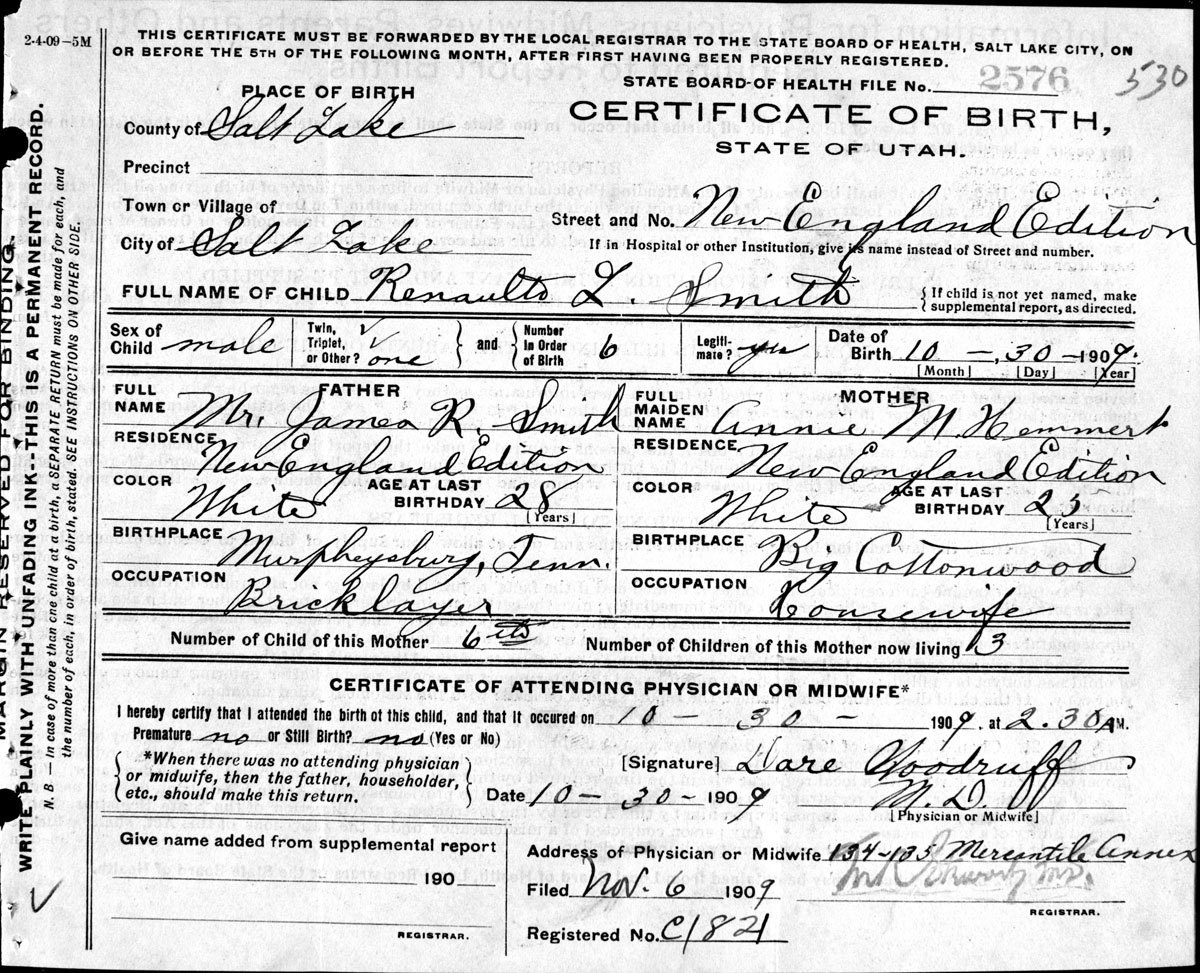 2-4-09-5M
THIS CERTIFICATE MUST BE FORWARDED BY THE LOCAL REGISTRAR TO THE STATE BOARD OF HEALTH, SALT LAKE CITY, ON
OR BEFORE THE 5TH OF THE FOLLOWING MONTH, AFTER FIRST HAVING BEEN PROPERLY REGISTERED.
STATE BOARD OF HEALTH FILE No. 2576
530
PLACE OF BIRTH
CERTIFICATE OF BIRTH,
STATE OF UTAH.
County of Salt Lake
Precinct
Town or Village of
Street and No. New England Edition
City of Salt Lake
If in Hospital or other Institution, give its name instead of Street and number.
FULL NAME OF CHILD Renaulto L. Smith
If child is not yet named, make
supplemental report, as directed.
Sex of Child male
Twin, Triplet, or Other? one
and
Number in Order of Birth 6
Legitimate? yes
Date of Birth 10 - 30 - 1909.
[Month] [Day] [Year]
FATHER
FULL NAME Mr. James R. Smith
RESIDENCE New England Edition
COLOR White
AGE AT LAST BIRTHDAY 28
[Years]
BIRTHPLACE Murpheysburg, Tenn.
OCCUPATION Bricklayer
MOTHER
FULL MAIDEN NAME Annie M. Hemmert
RESIDENCE New England Edition
COLOR White
AGE AT LAST BIRTHDAY 25
[Years]
BIRTHPLACE Big Cottonwood
OCCUPATION Housewife
Number of Child of this Mother 6th
Number of Children of this Mother now living 3
CERTIFICATE OF ATTENDING PHYSICIAN OR MIDWIFE*
I hereby certify that I attended the birth of this child, and that it occured on 10 - 30 - 1909, at 2.30 AM.
Premature no or Still Birth? no (Yes or No)
*When there was no attending physician
or midwife, then the father, householder,
etc., should make this return.
[Signature] Dare Woodruff
M.D.
Date 10 - 30 - 1909
[Physician or Midwife]
Give name added from supplemental report
190
REGISTRAR.
Address of Physician or Midwife 134-135 Mercantile Annex
Filed Nov. 6 1909
REGISTRAR.
Registered No. C1821
MARGIN RESERVED FOR BINDING.
WRITE PLAINLY WITH UNFADING INK--THIS IS A PERMANENT RECORD.
N. B. — In case of more than one child at a birth, a SEPARATE RETURN must be made for each, and
the number of each, in order of birth, stated. SEE INSTRUCTIONS ON OTHER SIDE.